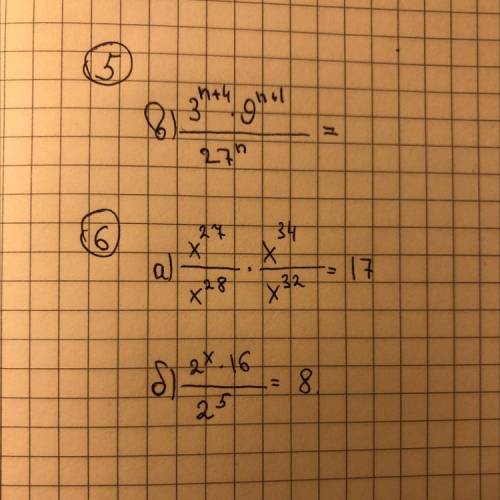 5
в) \frac{3^{n+4} \cdot 9^{n+1}}{27^n} =
6
а) \frac{x^{27}}{x^{28}} \cdot \frac{x^{34}}{x^{32}} = 17
б) \frac{2^x \cdot 16}{2^5} = 8